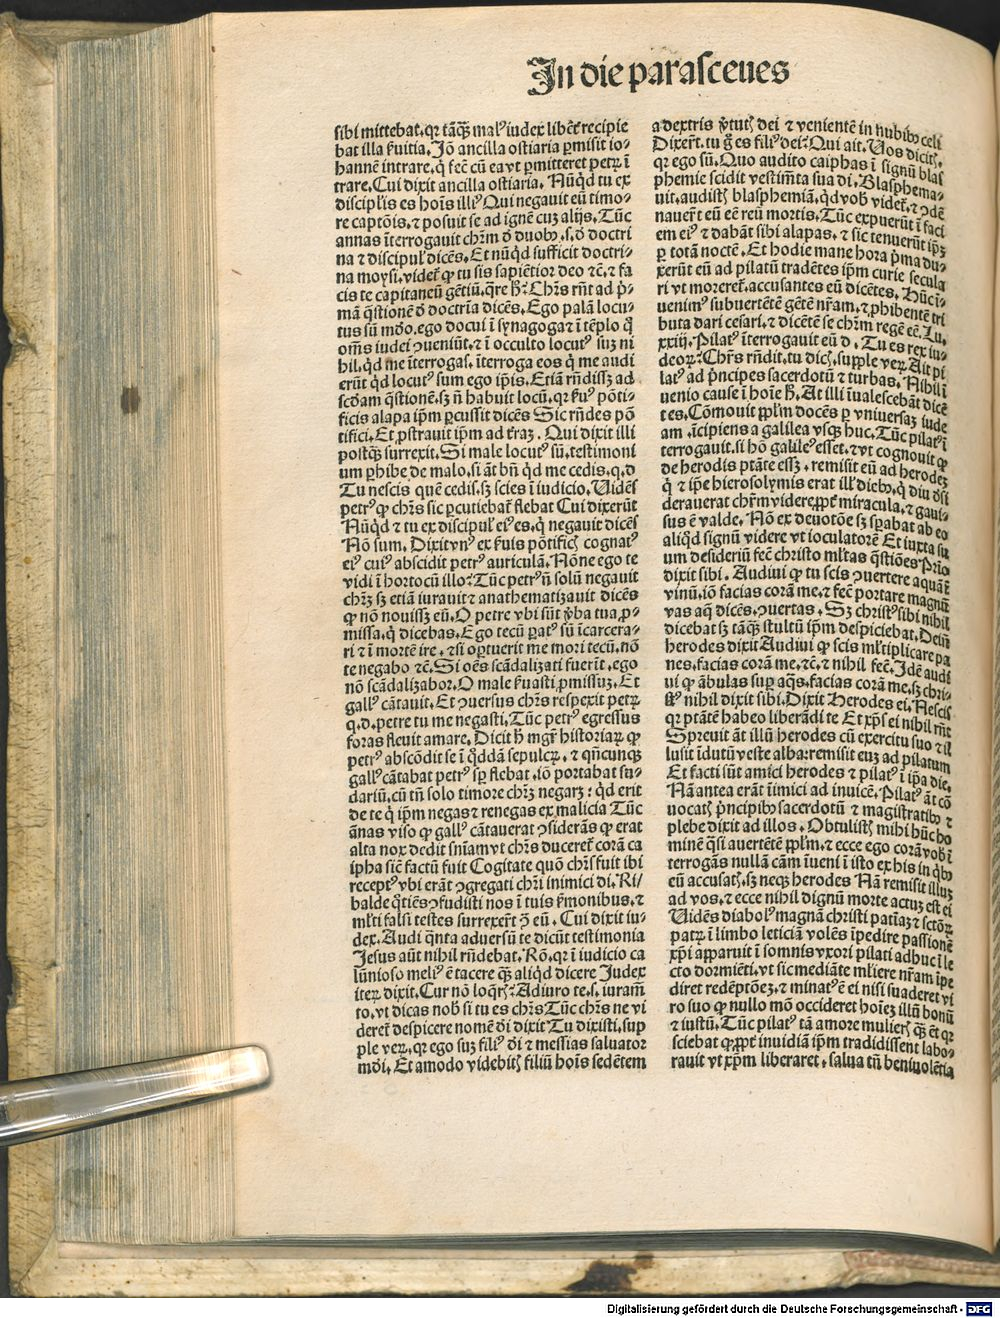 In die parasceues
sibi mittebat, qꝛ tãq̃ꝫ malꝰ iudex libẽt̃ recipie
bat illa ẜuitia. Jõ ancilla ostiaria ꝑmisit io-
hannẽ intrare, q̇ fec̃ cũ ea vt ꝑmitteret petrꝝ ĩ
trare. Cui dixit ancilla ostiaria. Nũq̇d tu ex
discipl̃is es hoĩs illiꝰ Qui negauit eũ timo-
re captõis. ⁊ posuit se ad ignẽ cuꝫ alijs. Tũc
annas ĩterrogauit chr̃m đ duobꝰ. s. đ doctri
na ⁊ discipul̃ dicẽs. Et nũq̇d sufficit doctri-
na moysi. videt̃ ꝙ tu sis sapiẽtior deo ⁊c̃. ⁊ fa
cis te capitaneũ gẽtiũ. q̃re hꝰ: Chr̃s rñt ad p̃-
mã q̃stionẽ đ doctrĩa dicẽs. Ego palã locu-
tus sũ mđo. ego docui ĩ synagoga ⁊ ĩ tẽplo q̇
om̃s iudei ꝯueniũt. ⁊ ĩ occulto locutꝰ suꝫ ni
hil. q̇d me ĩterrogas. ĩterroga eos q̇ me audi
erũt q̇d locutꝰ sum ego ip̃is. Etiã rñdissꝫ ad
scđam q̃stionẽ. sꝫ ñ habuit locũ. qꝛ ẜuꝰ põti-
ficis alapa ip̃m ꝑcussit dicẽs Sic rñdes põ
tifici. Et ꝓstrauit ip̃m ad t̃raꝫ. Qui dixit illi
postq̃ꝫ surrexit. Si male locutꝰ sũ. testimoni
um ꝑhibe de malo. si ãt bñ q̇d me cedis. q. d.
Tu nescis quẽ cedis. sꝫ scies ĩ iudicio. Vidẽs
petrꝰ ꝙ chr̃s sic ꝑcutiebat̃ flebat Cui dixerũt
Nũq̇d ⁊ tu ex discipul̃ eiꝰ es. q̇ negauit dicẽs
Nõ sum. Dixit vnꝰ ex ẜuis põtificꝭ cognatꝰ
eiꝰ cuiꝰ abscidit petrꝰ auriculã. Nõne ego te
vidi ĩ horto cũ illo: Tũc petrꝰ ñ solũ negauit
chr̃ꝫ sꝫ etiã iurauit ⁊ anathematizauit dicẽs
ꝙ nõ nouissꝫ eũ. O petre vbi sũt v̓ba tua ꝓ-
missa. q̇ dicebas. Ego tecũ ꝑatꝰ sũ ĩcarcera-
ri ⁊ ĩ mortẽ ire. ⁊ si oꝑtuerit me mori tecũ. nõ
te negabo ⁊c̃. Si oẽs scãdalizati fuerĩt. ego
nõ scãdalizabor. O male ẜuasti ꝓmissuꝫ. Et
gallꝰ cãtauit. Et ꝯuersus chr̃s respexit petrꝝ
q. d. petre tu me negasti. Tũc petrꝰ egressus
foras fleuit amare. Dicit h̃ mgr̃ historiaꝝ ꝙ
petrꝰ abscõdit se ĩ q̇ddã sepulcꝝ. ⁊ qñcunqꝫ
gallꝰ cãtabat petrꝰ sꝑ flebat. iõ portabat su-
dariũ. cũ tñ solo timore chr̃ꝫ negarꝫ: q̇d erit
de te q̇ ip̃m negas ⁊ renegas ex malicia Tũc
ãnas viso ꝙ gallꝰ cãtauerat ꝯsiderãs ꝙ erat
alta nox dedit sñiam vt chr̃s duceret̃ corã ca
ipha sic̃ factũ fuit Cogitate quõ chr̃s fuit ibi
receptꝰ vbi erãt ꝯgregati chr̃i inimici đi. Ri/
balde q̃tiẽs ꝯfudisti nos ĩ tuis ẜmonibus. ⁊
ml̃ti falsi testes surrexer̃t ꝯ̃ eũ. Cui dixit iu-
dex. Audi q̃nta aduersũ te dicũt testimonia
Jesus aũt nihil rñdebat. Rõ. qꝛ ĩ iudicio ca
lũnioso meliꝰ ẽ tacere q̃ꝫ aliq̇d dicere Judex
iteꝝ dixit. Cur nõ loq̃rꝭ: Adiuro te. s. iuram̃
to. vt dicas nob̃ si tu es chr̃s Tũc chr̃s ne vi
deret̃ despicere nomẽ đi dixit Tu dixisti. sup
ple veꝝ. qꝛ ego suꝫ filiꝰ đi ⁊ messias saluator
mđi. Et amodo videbitꝭ filiũ hoĩs sedẽtem
a dextris v̓tutꝭ dei ⁊ venientẽ in nubibꝰ celi
Dixer̃t. tu g̊ es filiꝰ dei: Qui ait. Vos dicitꝭ.
qꝛ ego sũ. Quo audito caiphas ĩ signũ blas
phemie scidit vestim̃ta sua di. Blasphema-
uit. audistꝭ blasphemiã. q̇d vob̃ videt̃. ⁊ ꝯdẽ
nauer̃t eũ eẽ reũ mortis. Tũc expuerũt ĩ faci
em eiꝰ ⁊ dabãt sibi alapas. ⁊ sic tenuerũt ip̃ꝫ
ꝑ totã noctẽ. Et hodie mane hora p̓ma du-
xerũt eũ ad pilatũ tradẽtes ip̃m curie secula
ri vt moreret̃. accusantes eũ dicẽtes. Hũc ĩ-
uenimꝰ subuertẽtẽ gẽtẽ nr̃am. ⁊ ꝓhibentẽ tri
buta dari cesari. ⁊ dicẽtẽ se chr̃m regẽ eẽ. Lu.
xxiij. Pilatꝰ ĩterrogauit eũ đ. Tu es rex iu-
deoꝝ: Chr̃s rñdit. tu dicꝭ. supple veꝝ. Ait pi
latꝰ ad p̓ncipes sacerdotũ ⁊ turbas. Nihil ĩ
uenio cause ĩ hoĩe h̃. At illi ĩualescebãt dicẽ
tes. Cõmouit ppl̃m docẽs ꝑ vniuersaꝫ iude
am. ĩcipiens a galilea vsqꝫ huc. Tũc pilatꝰ ĩ
terrogauit. si hõ galileꝰ esset. ⁊ vt cognouit ꝙ
de herodis ptãte essꝫ. remisit eũ ad herodeꝫ
q̇ ⁊ ip̃e hierosolymis erat ill̃ diebꝰ. q̇ diu đsi
derauerat chr̃m videre. ꝓpt̃ miracula. ⁊ gaui-
sus ẽ valde. Nõ ex deuotõe sꝫ sꝑabat ab eo
aliq̇d signũ videre vt ioculatorẽ Et iuxta su
um desideriũ fec̃ christo ml̃tas q̃stiões Prĩo
dixit sibi. Audiui ꝙ tu scis ꝯuertere aquã ĩ
vinũ. iõ facias corã me. ⁊ fec̃ portare magnũ
vas aq̃ dicẽs. ꝯuertas. Sꝫ christꝰ sibi nihil
dicebat sꝫ tãq̃ꝫ stultũ ip̃m despiciebat. Deiñ
herodes dixit Audiui ꝙ scis ml̃tiplicare pa
nes. facias corã me. ⁊c̃. ⁊ nihil fec̃. Jdẽ audi
ui ꝙ ãbulas suꝑ aq̃s. facias corã me. sꝫ chri-
stꝰ nihil dixit sibi. Dixit Herodes ei. Nescis
qꝛ ptãtẽ habeo liberãdi te Et xp̃s ei nihil rñt
Spreuit ãt illũ herodes cũ exercitu suo ⁊ il
lusit ĩdutũ veste alba: remisit euꝫ ad pilatum
Et facti sũt amici herodes ⁊ pilatꝰ ĩ ip̃a die.
Nã antea erãt ĩimici ad inuicẽ. Pilatꝰ ãt cõ
uocatꝭ p̓ncipibꝰ sacerdotũ ⁊ magistratibꝰ ⁊
plebe dixit ad illos. Obtulistꝭ mihi hũc ho
minẽ q̃si auertẽtẽ ppl̃m. ⁊ ecce ego corã vob̃ ĩ
terrogãs nullã cãm ĩueni ĩ isto ex his in q̇bꝰ
eũ accusatꝭ. sꝫ neqꝫ herodes Nã remisit illuꝫ
ad vos. ⁊ ecce nihil dignũ morte actuꝫ est ei
Vidẽs diabolꝰ magnã christi patĩaꝫ ⁊ sctõꝝ
patꝝ ĩ limbo leticiã volẽs ĩpedire passionẽ
xp̃i apparuit ĩ somnis vxori pilati adhuc ĩ le
cto dormiẽti. vt sic mediãte ml̃iere nr̃am ĩpe
diret redẽptõeꝫ. ⁊ minatꝰ ẽ ei nisi suaderet vi
ro suo ꝙ nullo mõ occideret hoĩeꝫ illũ bonũ
⁊ iustũ. Tũc pilatꝰ tã amore mulierꝭ q̃ꝫ ẽt qꝛ
sciebat ꝙ ꝓpt̃ inuidiã ip̃m tradidissent labo-
rauit vt xp̃m liberaret. salua tñ beniuolẽtia
Digitalisierung gefördert durch die Deutsche Forschungsgemeinschaft - DFG